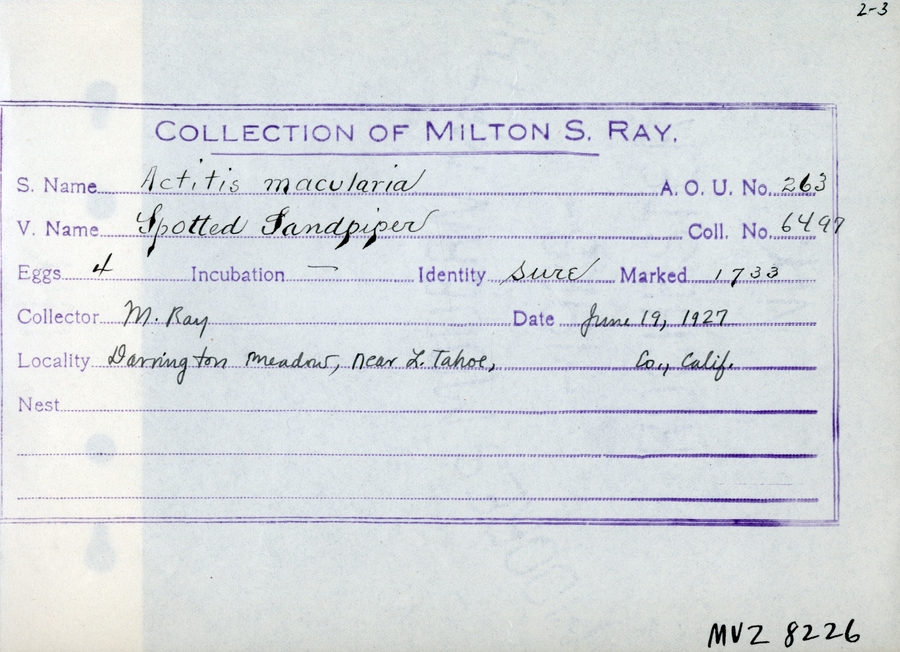 2-3
COLLECTION OF MILTON S. RAY.
S. Name Actitis macularia A. O. U. No. 263
V. Name Spotted Sandpiper Coll. No. 6497
Eggs 4 Incubation — Identity sure Marked 1733
Collector M. Ray Date June 19, 1927
Locality Darrington meadow, near L. Tahoe, Co., Calif.
Nest
MVZ 8226